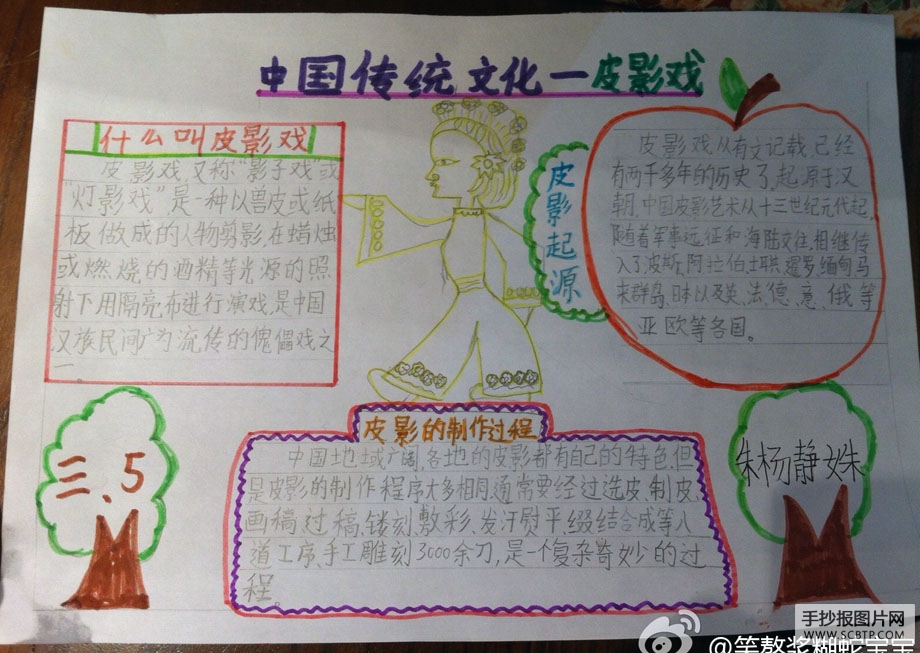 中国传统文化一皮影戏
什么叫皮影戏
皮影戏又称"影子戏"或
"灯影戏"是一种以兽皮或纸
板做成的人物剪影,在蜡烛
或燃烧的酒精等光源的照
射下用隔亮布进行演戏,是中国
汉族民间广为流传的傀儡戏之
一。
皮影起源
皮影戏从有文记载,已经
有两千多年的历史了,起原于汉
朝。中国皮影艺术从十三世纪元代起,
随着军事远征和海陆交往,相继传
入了波斯、阿拉伯、土耳其、暹罗、缅甸、马
来群岛、日本以及英、法、德、意、俄等
亚欧等各国。
皮影的制作过程
中国地域广阔,各地的皮影都有自己的特色,但
是皮影的制作程序大多相同,通常要经过选皮、制皮、
画稿、过稿、镂刻、敷彩、发汗熨平、缀结合成等八
道工序、手工雕刻3000余刀,是一个复杂奇妙的过
程。
三、5
朱杨静姝
手抄报图片网
WWW.SCBTP.COM